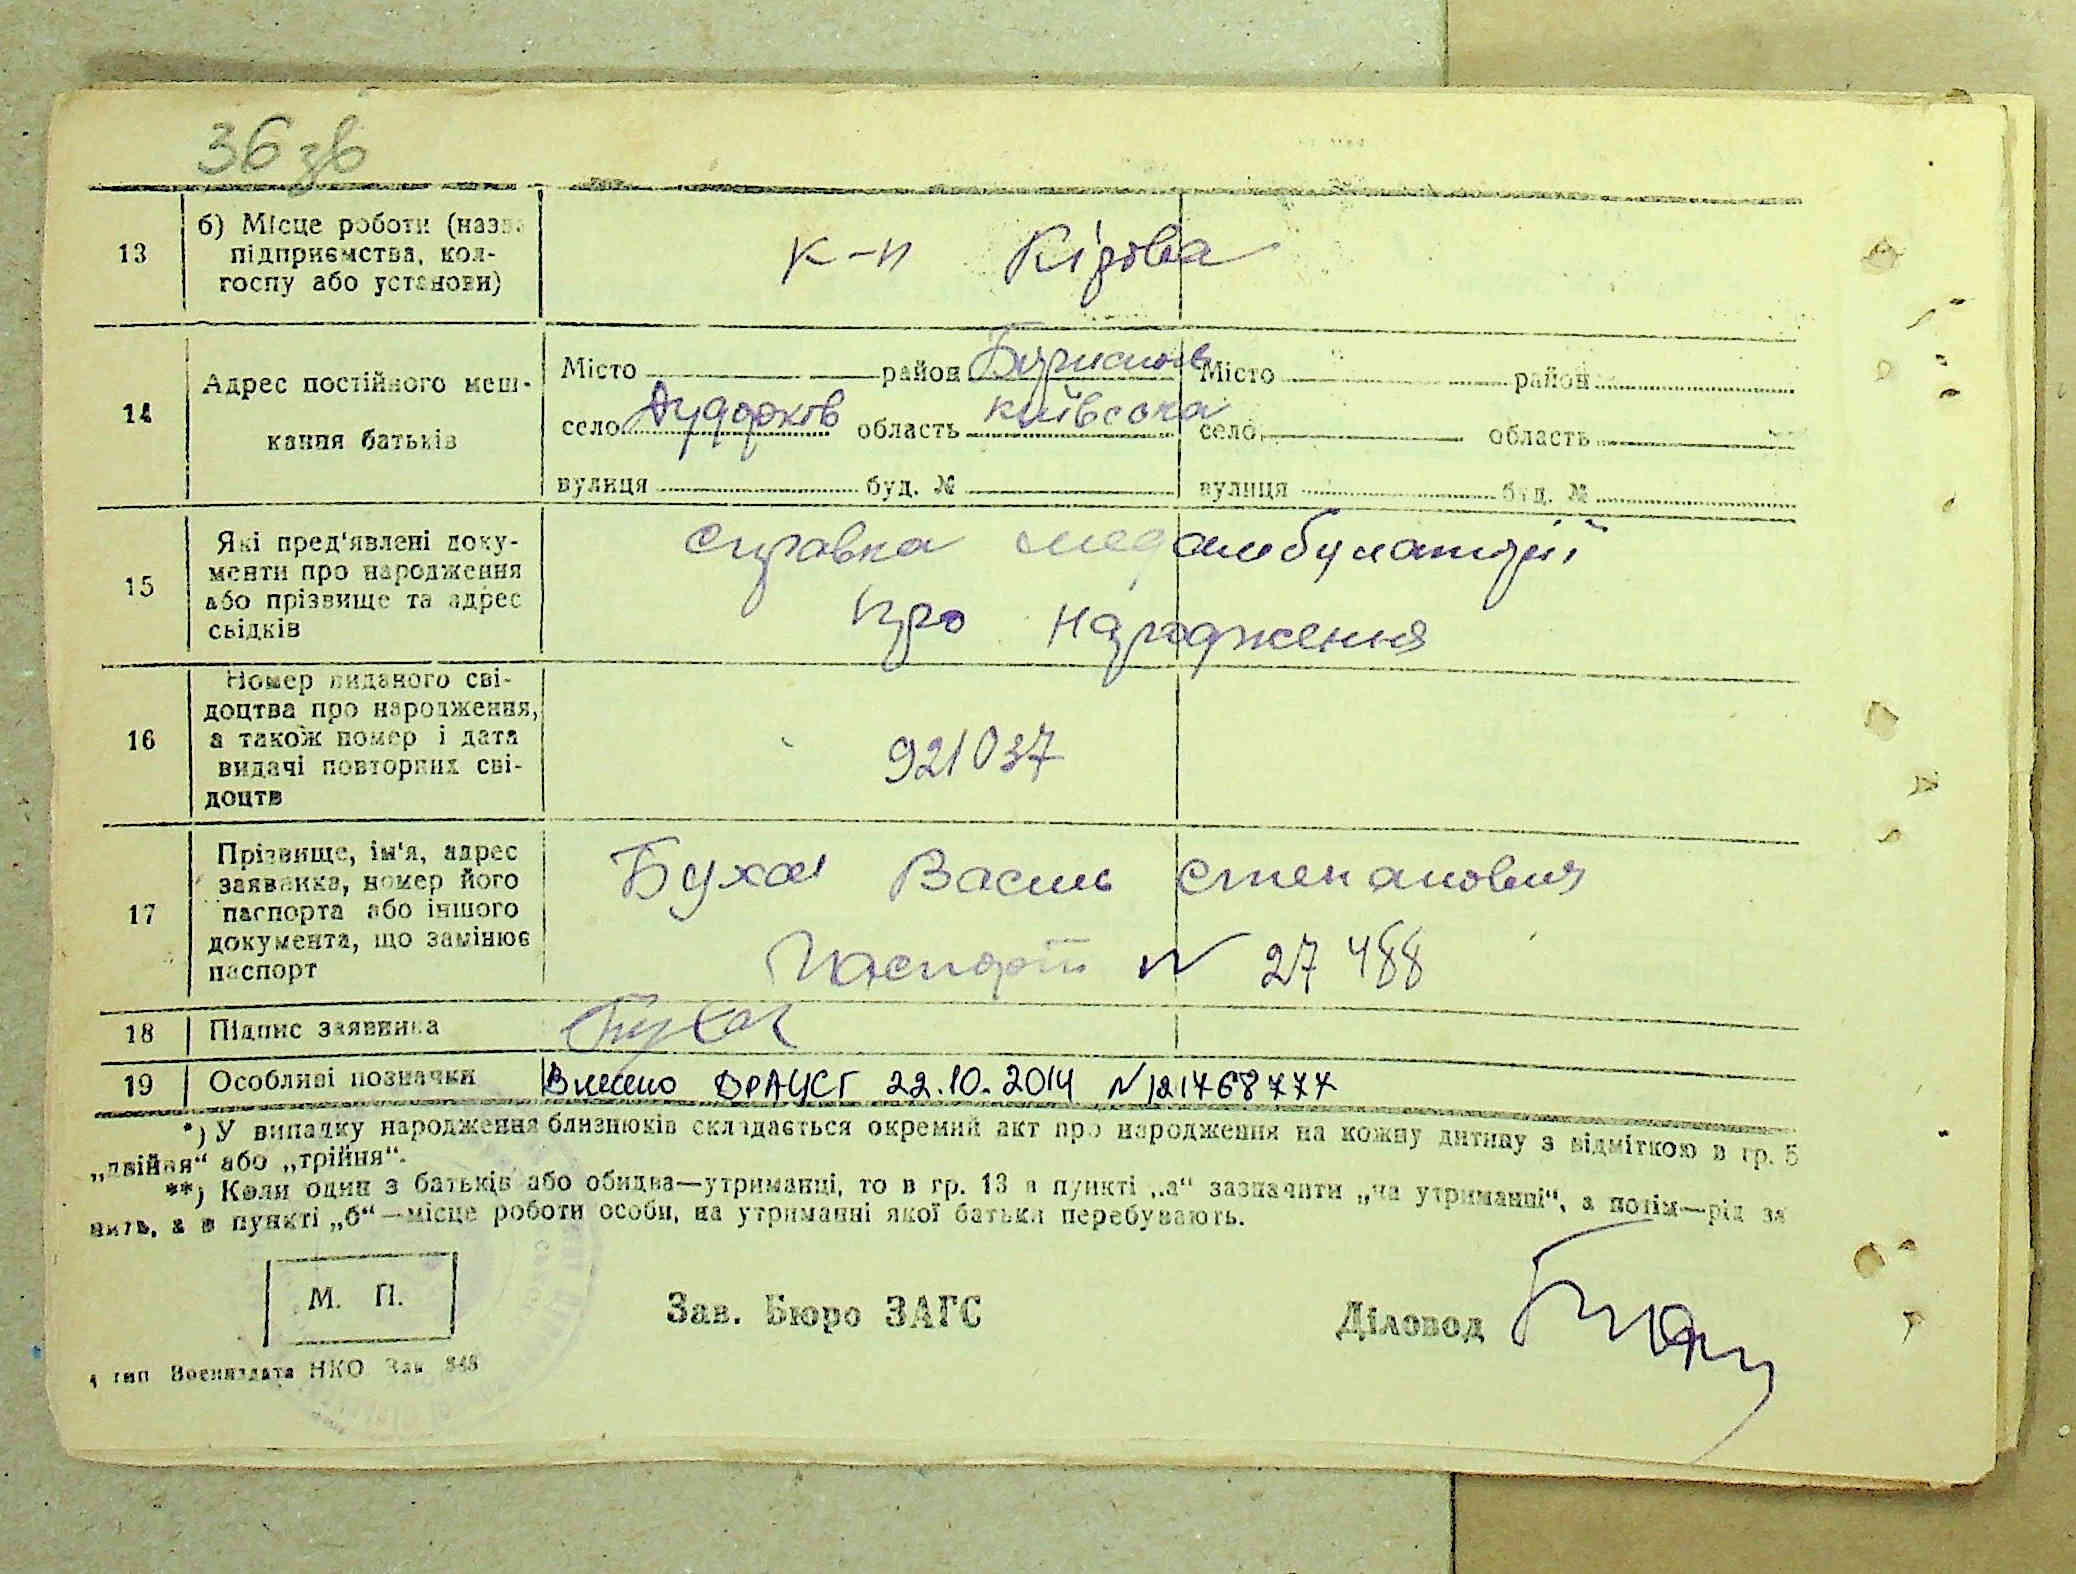 36 зв
13 б) Місце роботи (назва підприємства, колгоспу або установи) к-п Кірова
14 Адрес постійного мешкання батьків
Місто район Бориспол Місто район
село Дударков область київська село область
вулиця буд. № вулиця буд. №
15 Які пред'явлені документи про народження або прізвище та адрес свідків
справка медамбулаторії
про народження
16 Номер виданого свідоцтва про народження, а також номер і дата видачі повторних свідоцтв
921037
17 Прізвище, ім'я, адрес заявника, номер його паспорта або іншого документа, що замінює паспорт
Бухал Василь Степанович
Паспорт N 27 488
18 Підпис заявника
19 Особливі позначки Внесено ДРАЦСГ 22.10.2014 N 121768777
*) У випадку народження близнюків складається окремий акт про народження на кожну дитину з відміткою в гр. 5
„двійня“ або „трійня“.
**) Коли один з батьків або обидва—утриманці, то в гр. 13 в пункті „а“ зазначити „на утриманні“, а потім—рід за
нять, а в пункті „б“—місце роботи особи, на утриманні якої батьки перебувають.
М. П. Зав. Бюро ЗАГС Діловод
тип Воениздата НКО Зак 848